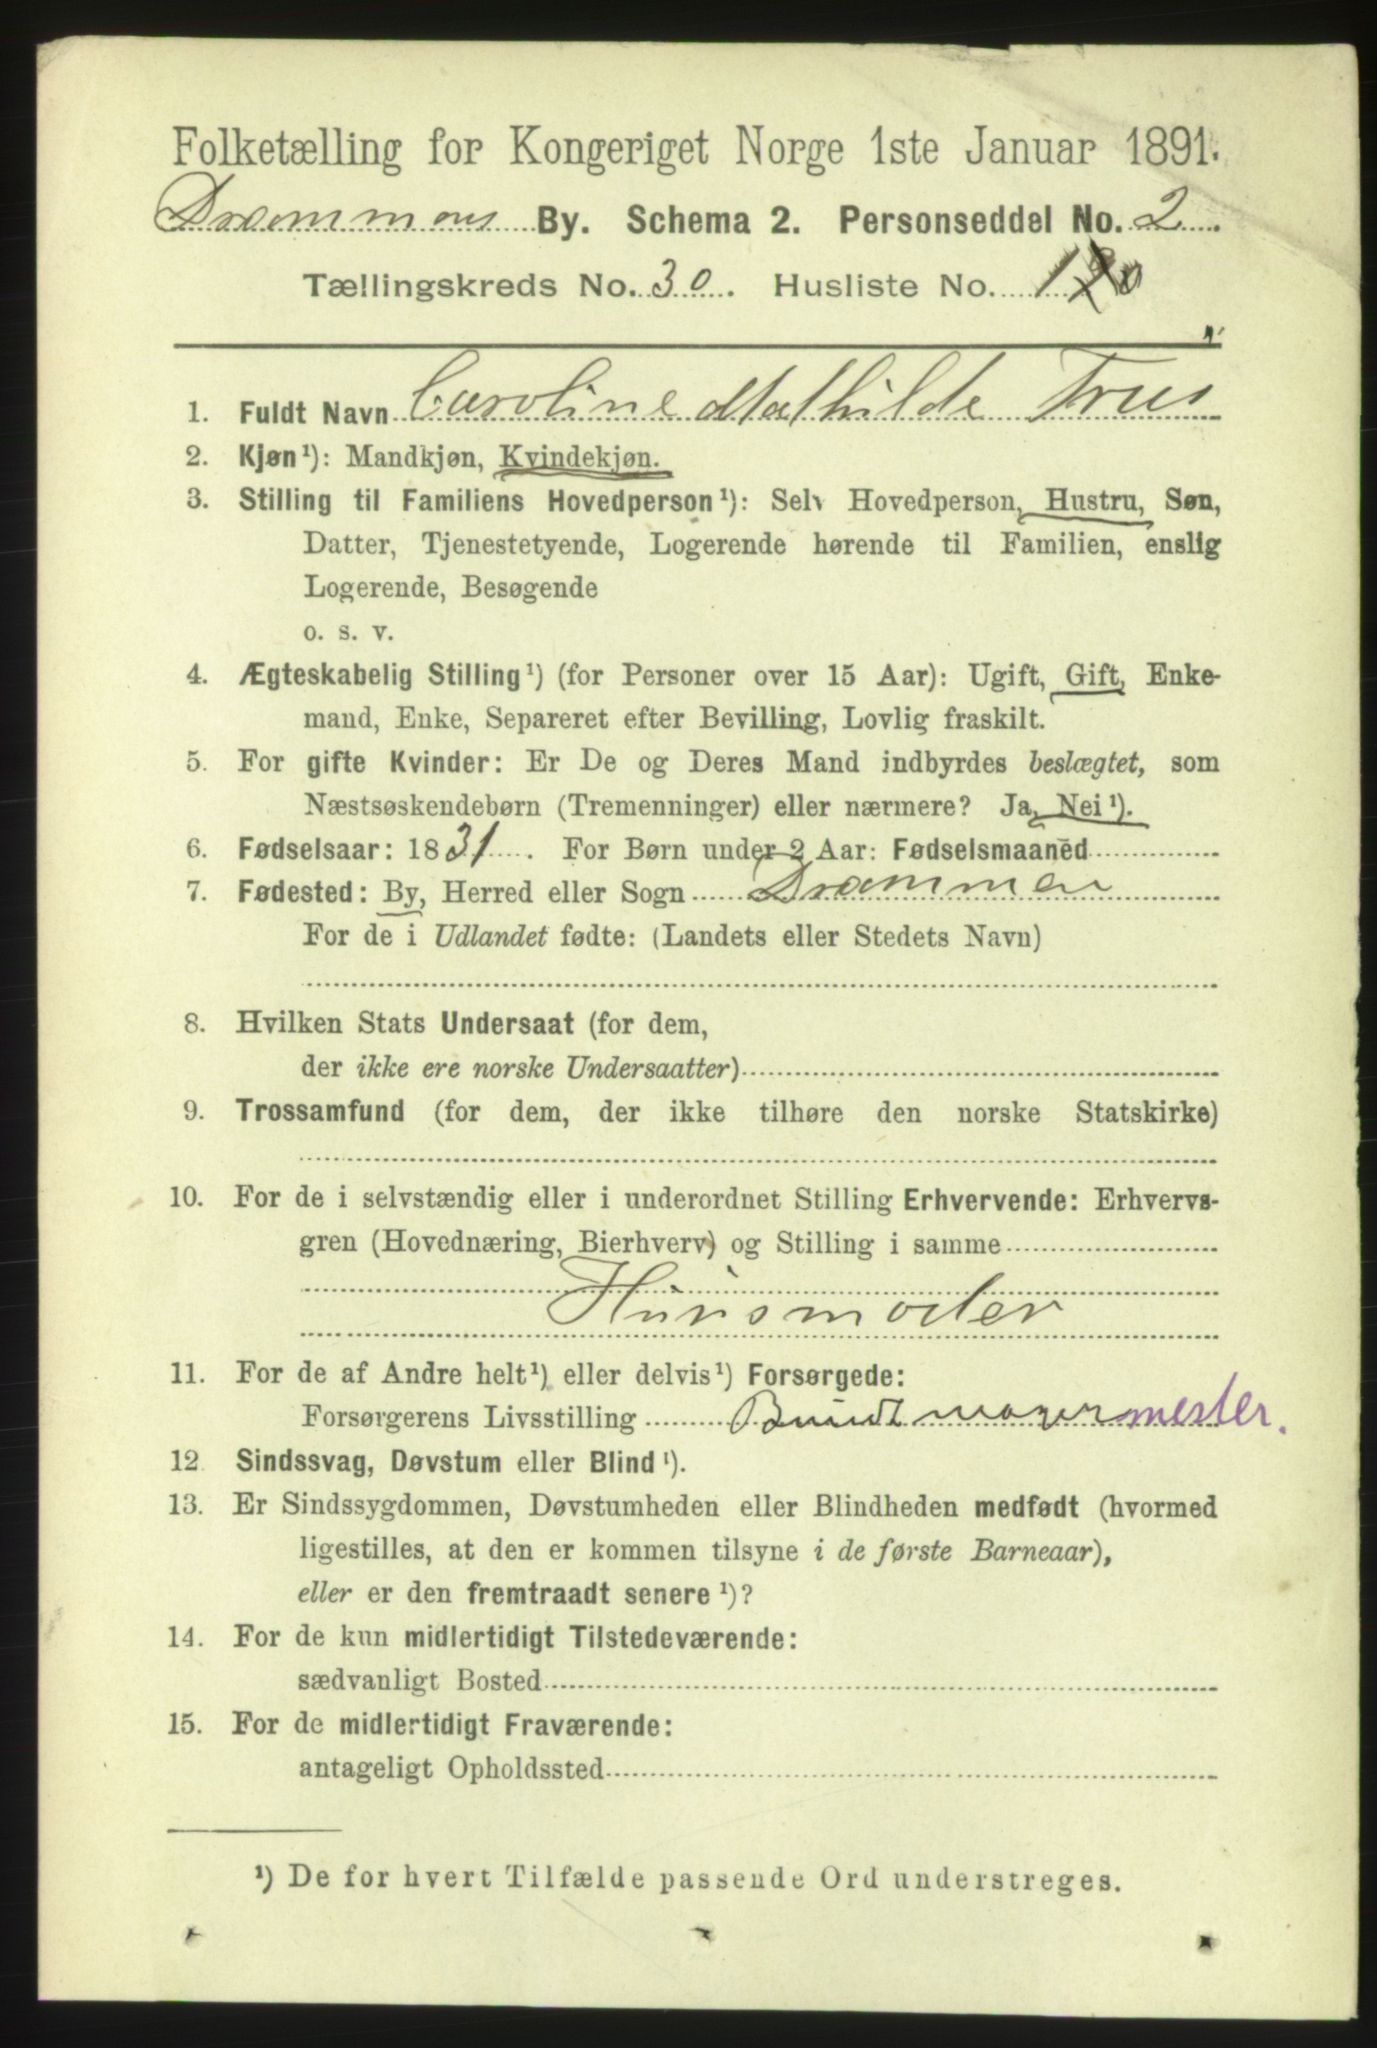 Folketælling for Kongeriget Norge 1ste Januar 1891.
Drammens By. Schema 2. Personseddel No. 2
Tællingskreds No. 30. Husliste No.
1. Fuldt Navn Caroline Mathilde
2. Kjøn¹): Mandkjøn, Kvindekjøn.
3. Stilling til Familiens Hovedperson¹): Selv Hovedperson, Hustru, Søn,
Datter, Tjenestetyende, Logerende hørende til Familien, enslig
Logerende, Besøgende
o. s. v.
4. Ægteskabelig Stilling¹) (for Personer over 15 Aar): Ugift, Gift, Enke-
mand, Enke, Separeret efter Bevilling, Lovlig fraskilt.
5. For gifte Kvinder: Er De og Deres Mand indbyrdes beslægtet, som
Næstsøskendebørn (Tremenninger) eller nærmere? Ja, Nei¹).
6. Fødselsaar: 1831. For Børn under 2 Aar: Fødselsmaaned
7. Fødested: By, Herred eller Sogn Drammen
For de i Udlandet fødte: (Landets eller Stedets Navn)
8. Hvilken Stats Undersaat (for dem,
der ikke ere norske Undersaatter)
9. Trossamfund (for dem, der ikke tilhøre den norske Statskirke)
10. For de i selvstændig eller i underordnet Stilling Erhvervende: Erhvervs-
gren (Hovednæring, Bierhverv) og Stilling i samme
Husmoder
11. For de af Andre helt¹) eller delvis¹) Forsørgede:
Forsørgerens Livsstilling Bundtmagermester.
12 Sindssvag, Døvstum eller Blind¹).
13. Er Sindssygdommen, Døvstumheden eller Blindheden medfødt (hvormed
ligestilles, at den er kommen tilsyne i de første Barneaar),
eller er den fremtraadt senere¹)?
14. For de kun midlertidigt Tilstedeværende:
sædvanligt Bosted
15. For de midlertidigt Fraværende:
antageligt Opholdssted
¹) De for hvert Tilfælde passende Ord understreges.